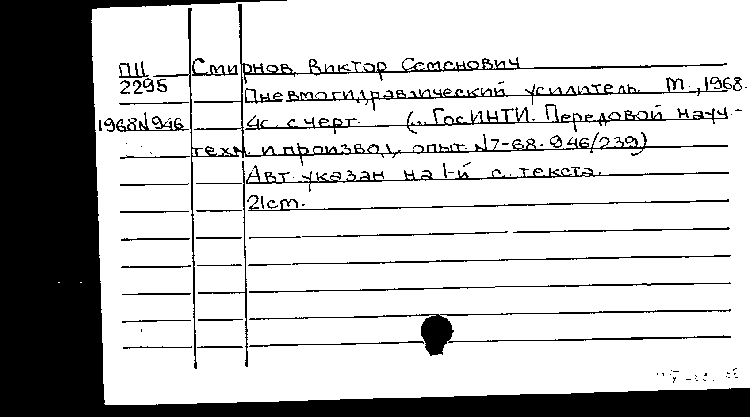 П11 Смирнов, Виктор Семенович
2295 Пневмогидравлический усилитель. М., 1968.
1968N946 4с. с черт. (.. ГосИНТИ. Передовой науч.-
техн. и произвол. опыт. N7-68-946/239)
Авт. указан на 1-й с. текста.
21cm.